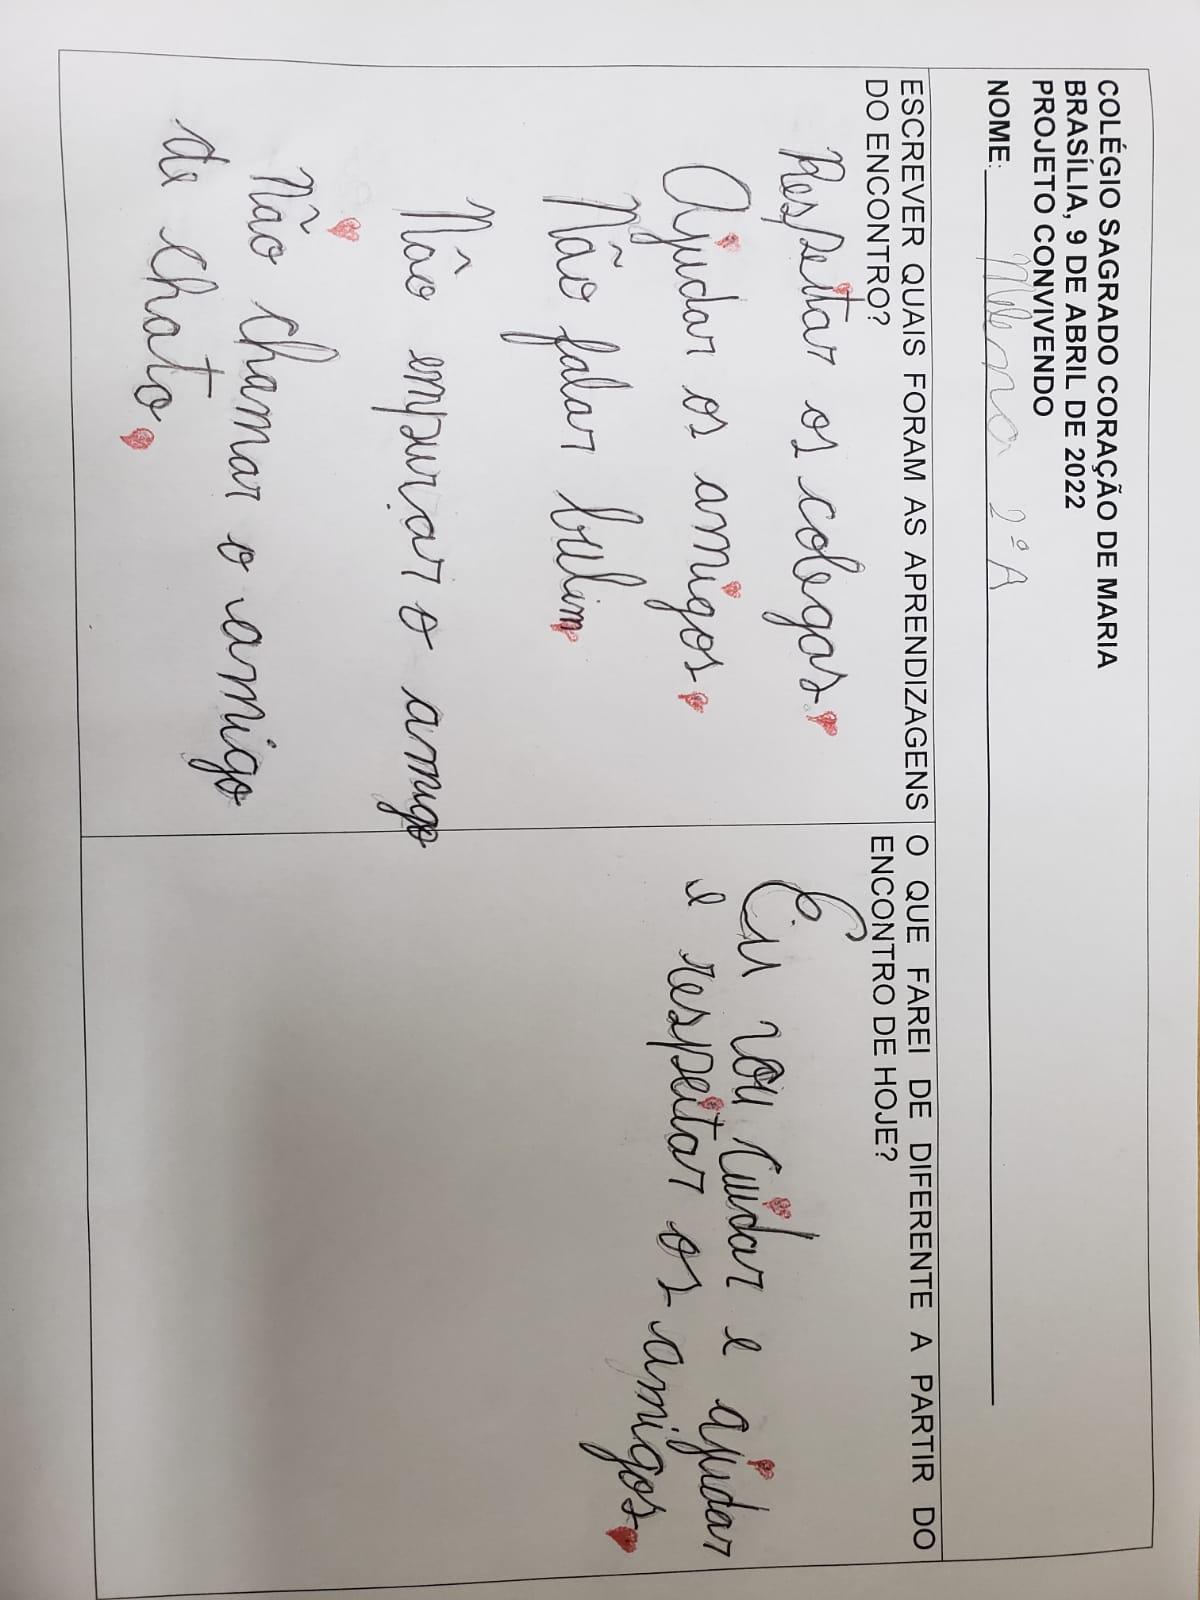 COLÉGIO SAGRADO CORAÇÃO DE MARIA
BRASÍLIA, 9 DE ABRIL DE 2022
PROJETO CONVIVENDO
NOME: Milena 2º A
ESCREVER QUAIS FORAM AS APRENDIZAGENS
DO ENCONTRO?
Respeitar os colegas.
Ajudar os amigos.
Não falar bulim.
Não empurar o amigo
Não chamar o amigo
de chato.
O QUE FAREI DE DIFERENTE A PARTIR DO
ENCONTRO DE HOJE?
Eu vou cuidar e ajudar
e respeitar os amigos.